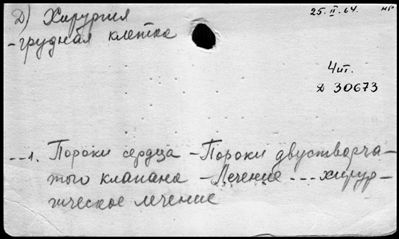 Д) Хирургия
25.II.64. нг
-грудная клетка
Чит.
Д 30673
--1. Пороки сердца -Пороки двустворча-
того клапана -Лечение ---хирур-
гическое лечение